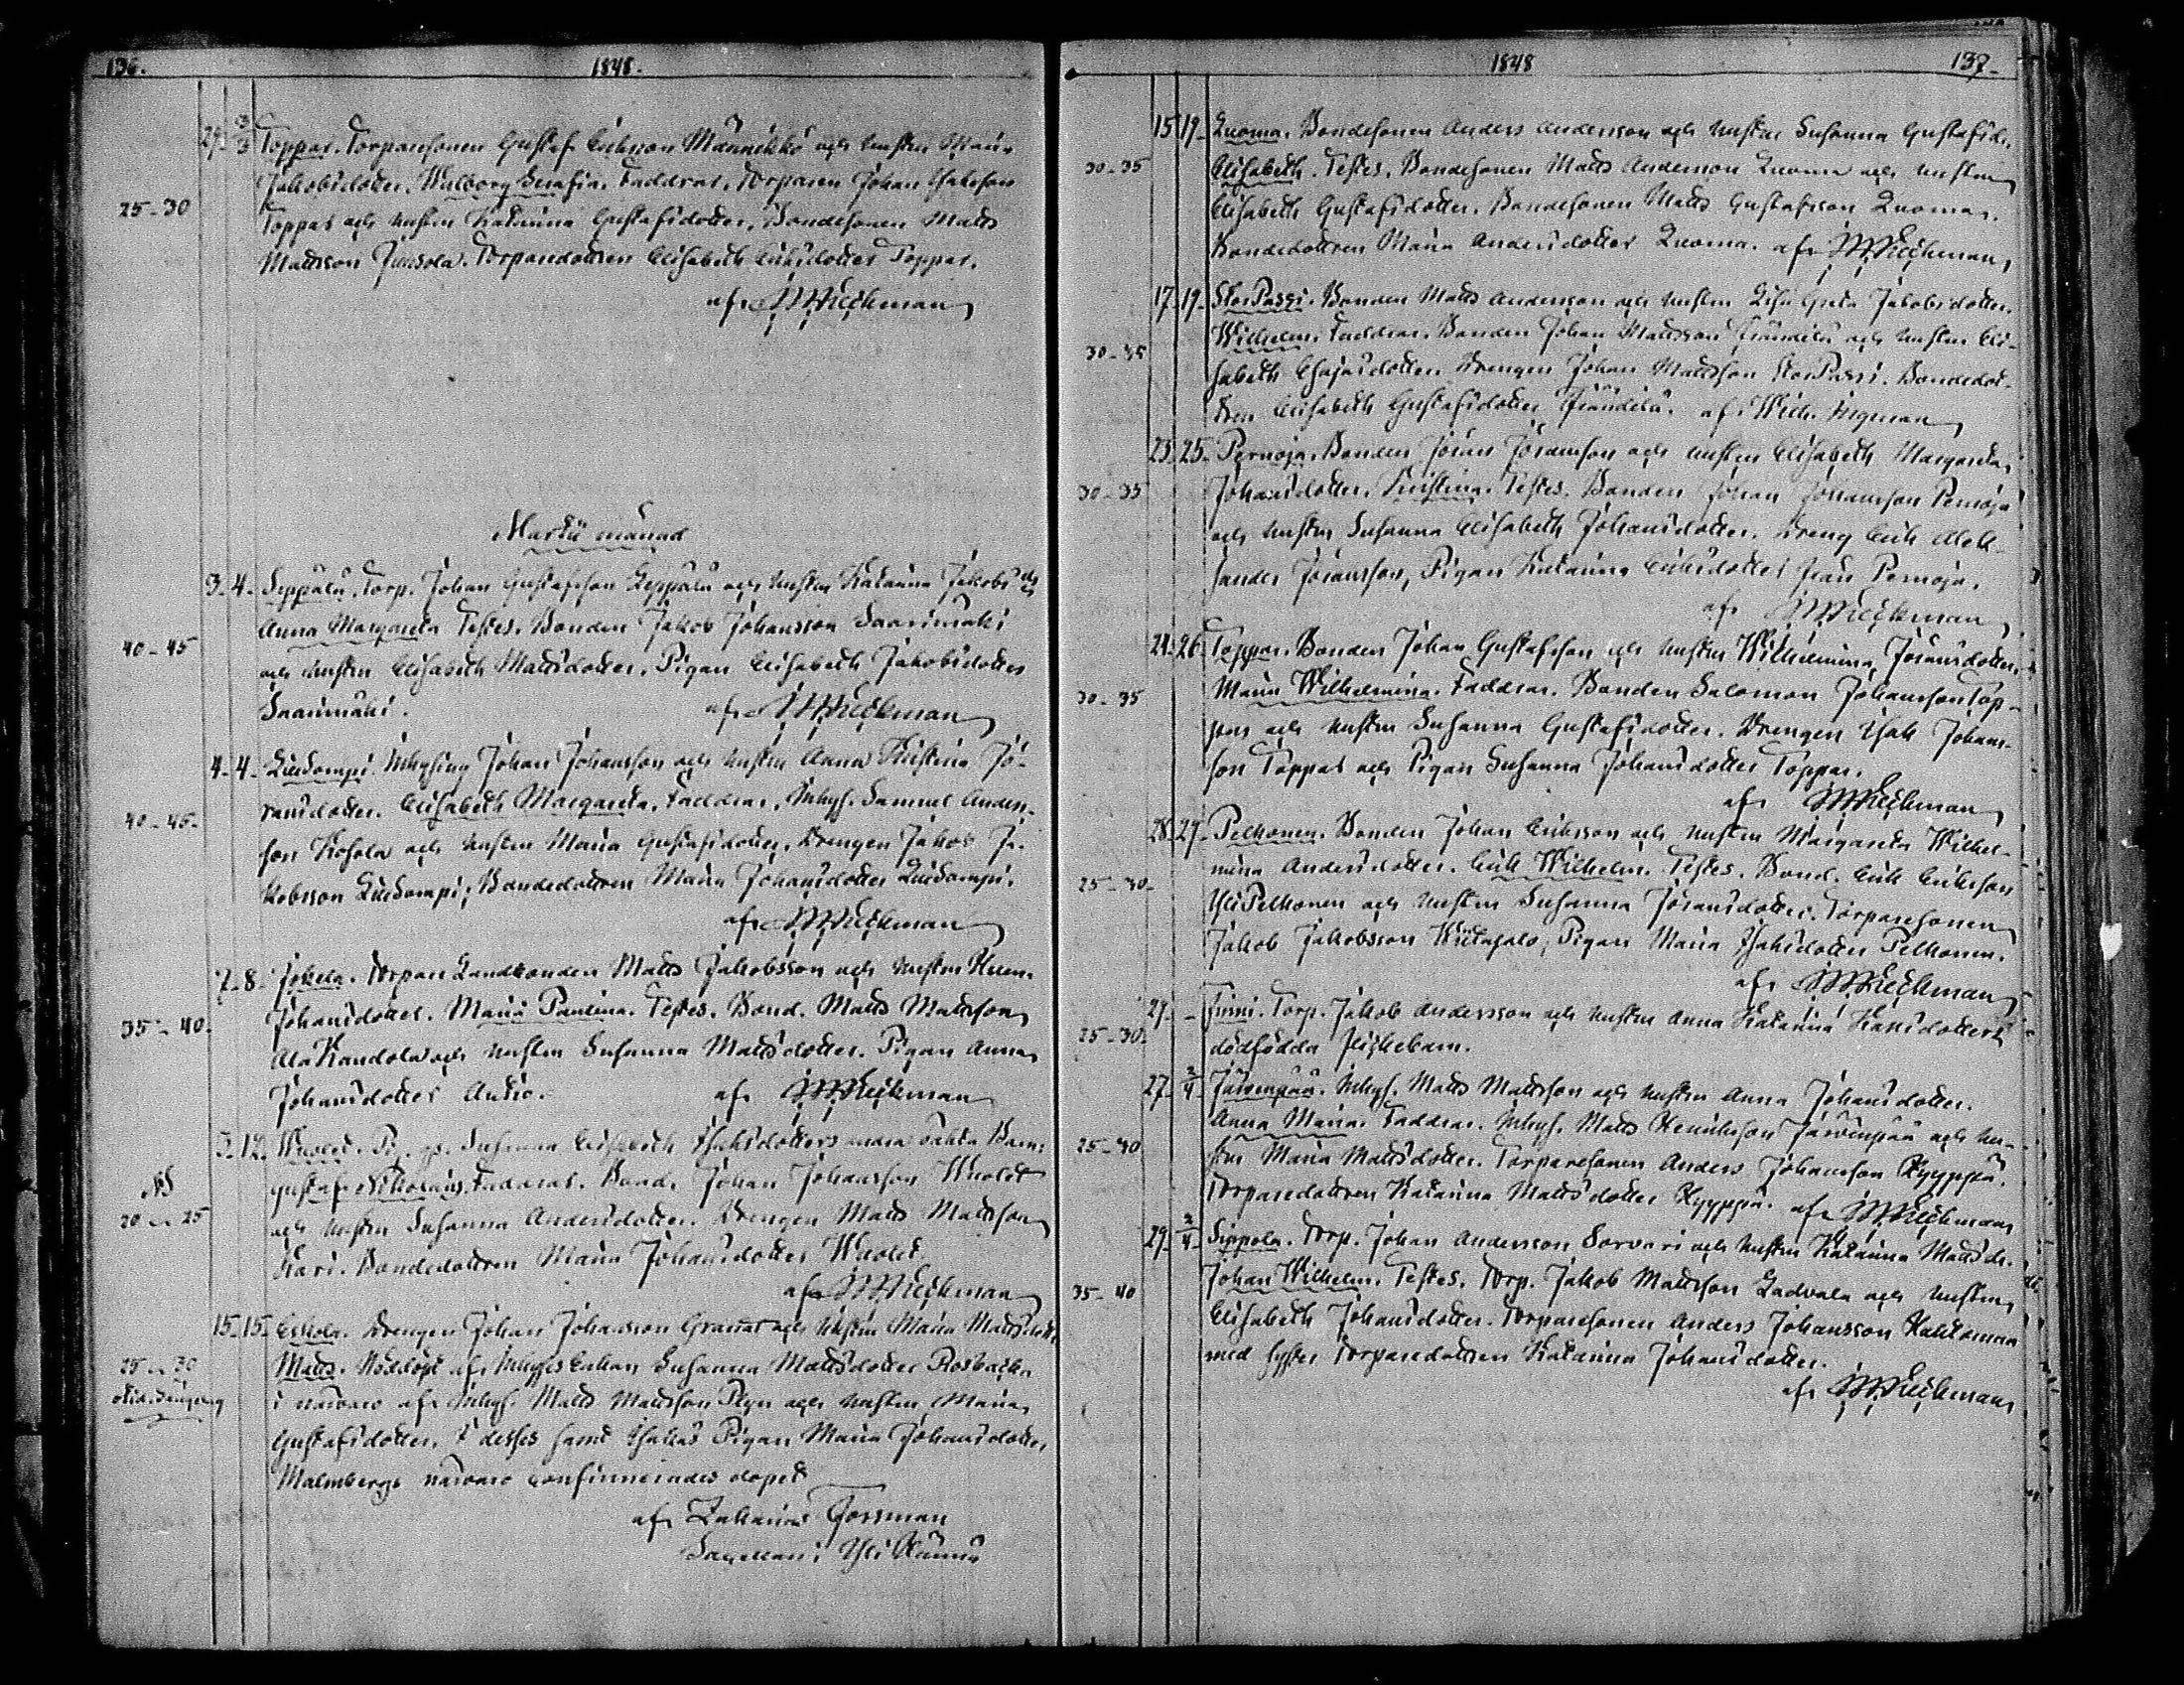 136. 1848.
29. 3/3 Toppar. Torparesonen Gustaf Eriksson Männikkö och hustru Maria
Jakobsdotter. Walborg Serafia. Faddrar. Torparen Johan Isaksson
25-30
Toppar och hustru Katarina Gustafsdotter, Bondesonen Matts
Mattsson Jussola. Torparedottren Elisabeth Eriksdotter Toppar.
af
Martii månad
3. 4. Seppälä. Torp. Johan Gustafsson Seppälä och hustru Katarina Jakobsd.
Anna Margareta Testes. Bonden Jakob Johansson Saarimäki
40-45
och hustru Elisabeth Mattsdotter. Pigan Elisabeth Jakobsdotter
Saarimäki. af
4. 4. Inhysing Johan Johansson och hustru Anna Kristina Jö-
ransdotter. Elisabeth Margareta. Faddrar. Inhys. Samuel Anders-
40-45.
son Kohola och hustru Maria Gustafsdotter, Drengen Jakob Ja-
kobsson Bondedottren Maria Johansdotter
af
7. 8. Jokela. Landbonden Matts Jakobsson och hustru
Johansdotter. Maria Paulina. Testes. Bond. Matts Mattsson
35-40.
Ala Kandola och hustru Susanna Mattsdotter. Pigan Anna
Johansdotter Antio. af
3. 12. Wuolet. Pig. Susanna Elisabeth Isaksdotters oäkta Barn:
Gustaf Nikolaus. Faddrar. Bond. Johan Johansson Wuolet
20 25
och hustru Susanna Andersdotter. Drengen Matts Mattsson
Kari. Bondedottren Maria Johansdotter Wuolet.
af
15. 15. Eskola. Drengen Johan Johansson Granat och hustru Maria Mattsdotter
Matts. Nöddöpt af Inhyses Enkan Susanna Mattsdotter Rosback
25 30
i närvaro af Inhys. Matts Mattsson och hustru Maria
Gustafsdotter. I desses samt Pigan Maria Johansdotter
Malmbergs närvaro confirmerades dopet
af Zakarias Forsman
Sacellan i
1848 137.
15 19. Luoma. Bondesonen Anders Andersson och hustru Susanna Gustafsd.
30-35
Elisabeth. Testes. Bondesonen Matts Andersson Luoma och hustru
Elisabeth Gustafsdotter. Bondesonen Matts Gustafsson Luoma.
Bondedottren Maria Andersdotter Luoma. af
17. 19. Stor Passi. Bonden Matts Andersson och hustru Lisa Greta Jakobsdotter.
Wilhelm. Faddrar. Bonden Johan Mattsson Frändilä och hustru Eli-
30-35
sabeth Esajasdotter. Drengen Johan Mattsson Stor Passi. Bondedot-
tren Elisabeth Gustafsdotter Frändilä. af Wilh. Ingman
23. 25. Pernoja. Bonden Jöran Jöransson och hustru Elisabeth Margareta
30-35
Johansdotter. Kristina. Testes. Bonden Johan Johansson Pernoja
och hustru Susanna Elisabeth Johansdotter. Dreng Erik Alek-
sander Jöransson, Pigan Katarina Eriksdotter från Pernoja.
af
24. 26. Toppar. Bonden Johan Gustafsson och hustru Wilhelmina Jöransdotter.
30-35
Maria Wilhelmina. Faddrar. Bonden Salomon Johansson Top-
par och hustru Susanna Gustafsdotter. Drengen Isak Johans-
son Toppar och Pigan Susanna Johansdotter Toppar.
af
28. 27. Pelkonen. Bonden Johan Eriksson och hustru Margareta Wilhel-
mina Andersdotter. Erik Wilhelm. Testes. Bond. Erik Eriksson
25-30.
Yli Pelkonen och hustru Susanna Jöransdotter. Torparesonen
Jakob Jakobsson Wiitasalo, Pigan Maria Isaksdotter Pelkonen.
af
27. Finni. Torp. Jakob Andersson och hustru Anna Katarina
25-30.
dödfödda flickebarn.
27. 2/4 Järvenpää. Inhys. Matts Mattsson och hustru Anna Johansdotter.
Anna Maria. Faddrar. Inhys. Matts Henriksson Järvenpää och hu-
25-40
stru Maria Mattsdotter. Torparesonen Anders Johansson Kyyppä.
Torparedottren Katarina Mattsdotter Kyyppä. af
29. 2/4 Sippola. Torp. Johan Andersson Sorvari och hustru Katarina Mattsdr.
Johan Wilhelm. Testes. Torp. Jakob Mattsson Ladvala och hustru
35-40
Elisabeth Johansdotter. Torparesonen Anders Johansson
med syster Torparedottren Katarina Johansdotter.
af